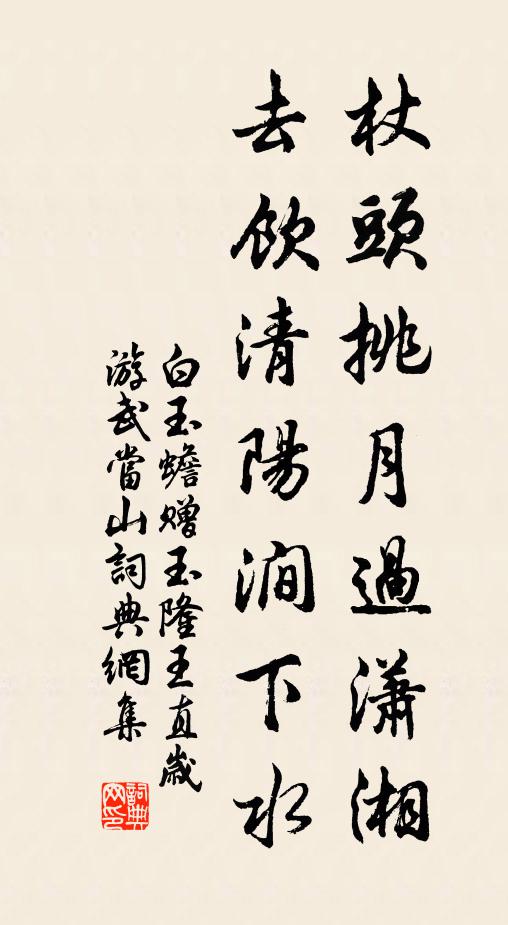 杖頭挑月過瀟湘
去飲清陽澗下水
白玉蟾贈玉隆王直歲
游武當山詞典網集
詞典
网印